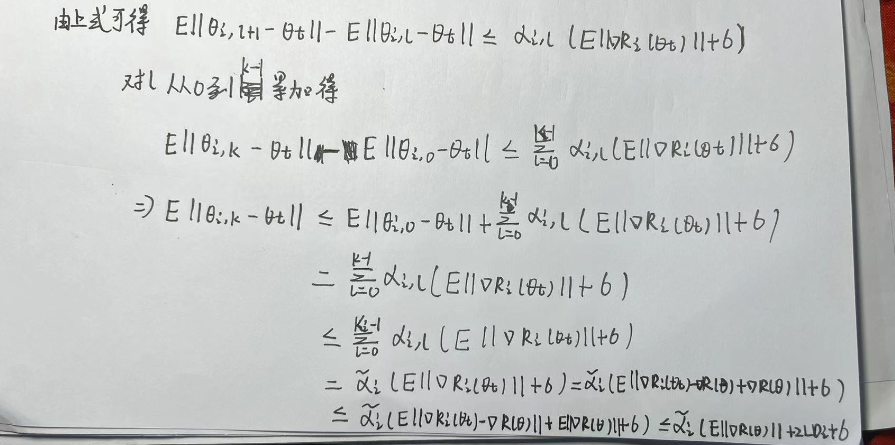 由上式可得 E||θi,l+1 - θt|| - E||θi,l - θt|| ≤ αi,l (E||∇Ri(θt)||+6)
对l 从0到 k-1 累加得
E||θi,k - θt|| - E||θi,0 - θt|| ≤ Σ_{l=0}^{k-1} αi,l (E||∇Ri(θt)||+6)
⇒ E||θi,k - θt|| ≤ E||θi,0 - θt|| + Σ_{l=0}^{k-1} αi,l (E||∇Ri(θt)||+6)
= Σ_{l=0}^{k-1} αi,l (E||∇Ri(θt)||+6)
≤ Σ_{l=0}^{Ki-1} αi,l (E||∇Ri(θt)||+6)
= α̃i (E||∇Ri(θt)||+6) = α̃i (E||∇Ri(θt)-∇R(θ)+∇R(θ)||+6)
≤ α̃i (E||∇Ri(θt)-∇R(θ)||+E||∇R(θ)||+6) ≤ α̃i (E||∇R(θ)||+2LDi+6